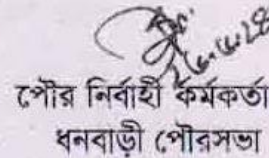 পৌর নির্বাহী কর্মকর্তা
ধনবাড়ী পৌরসভা